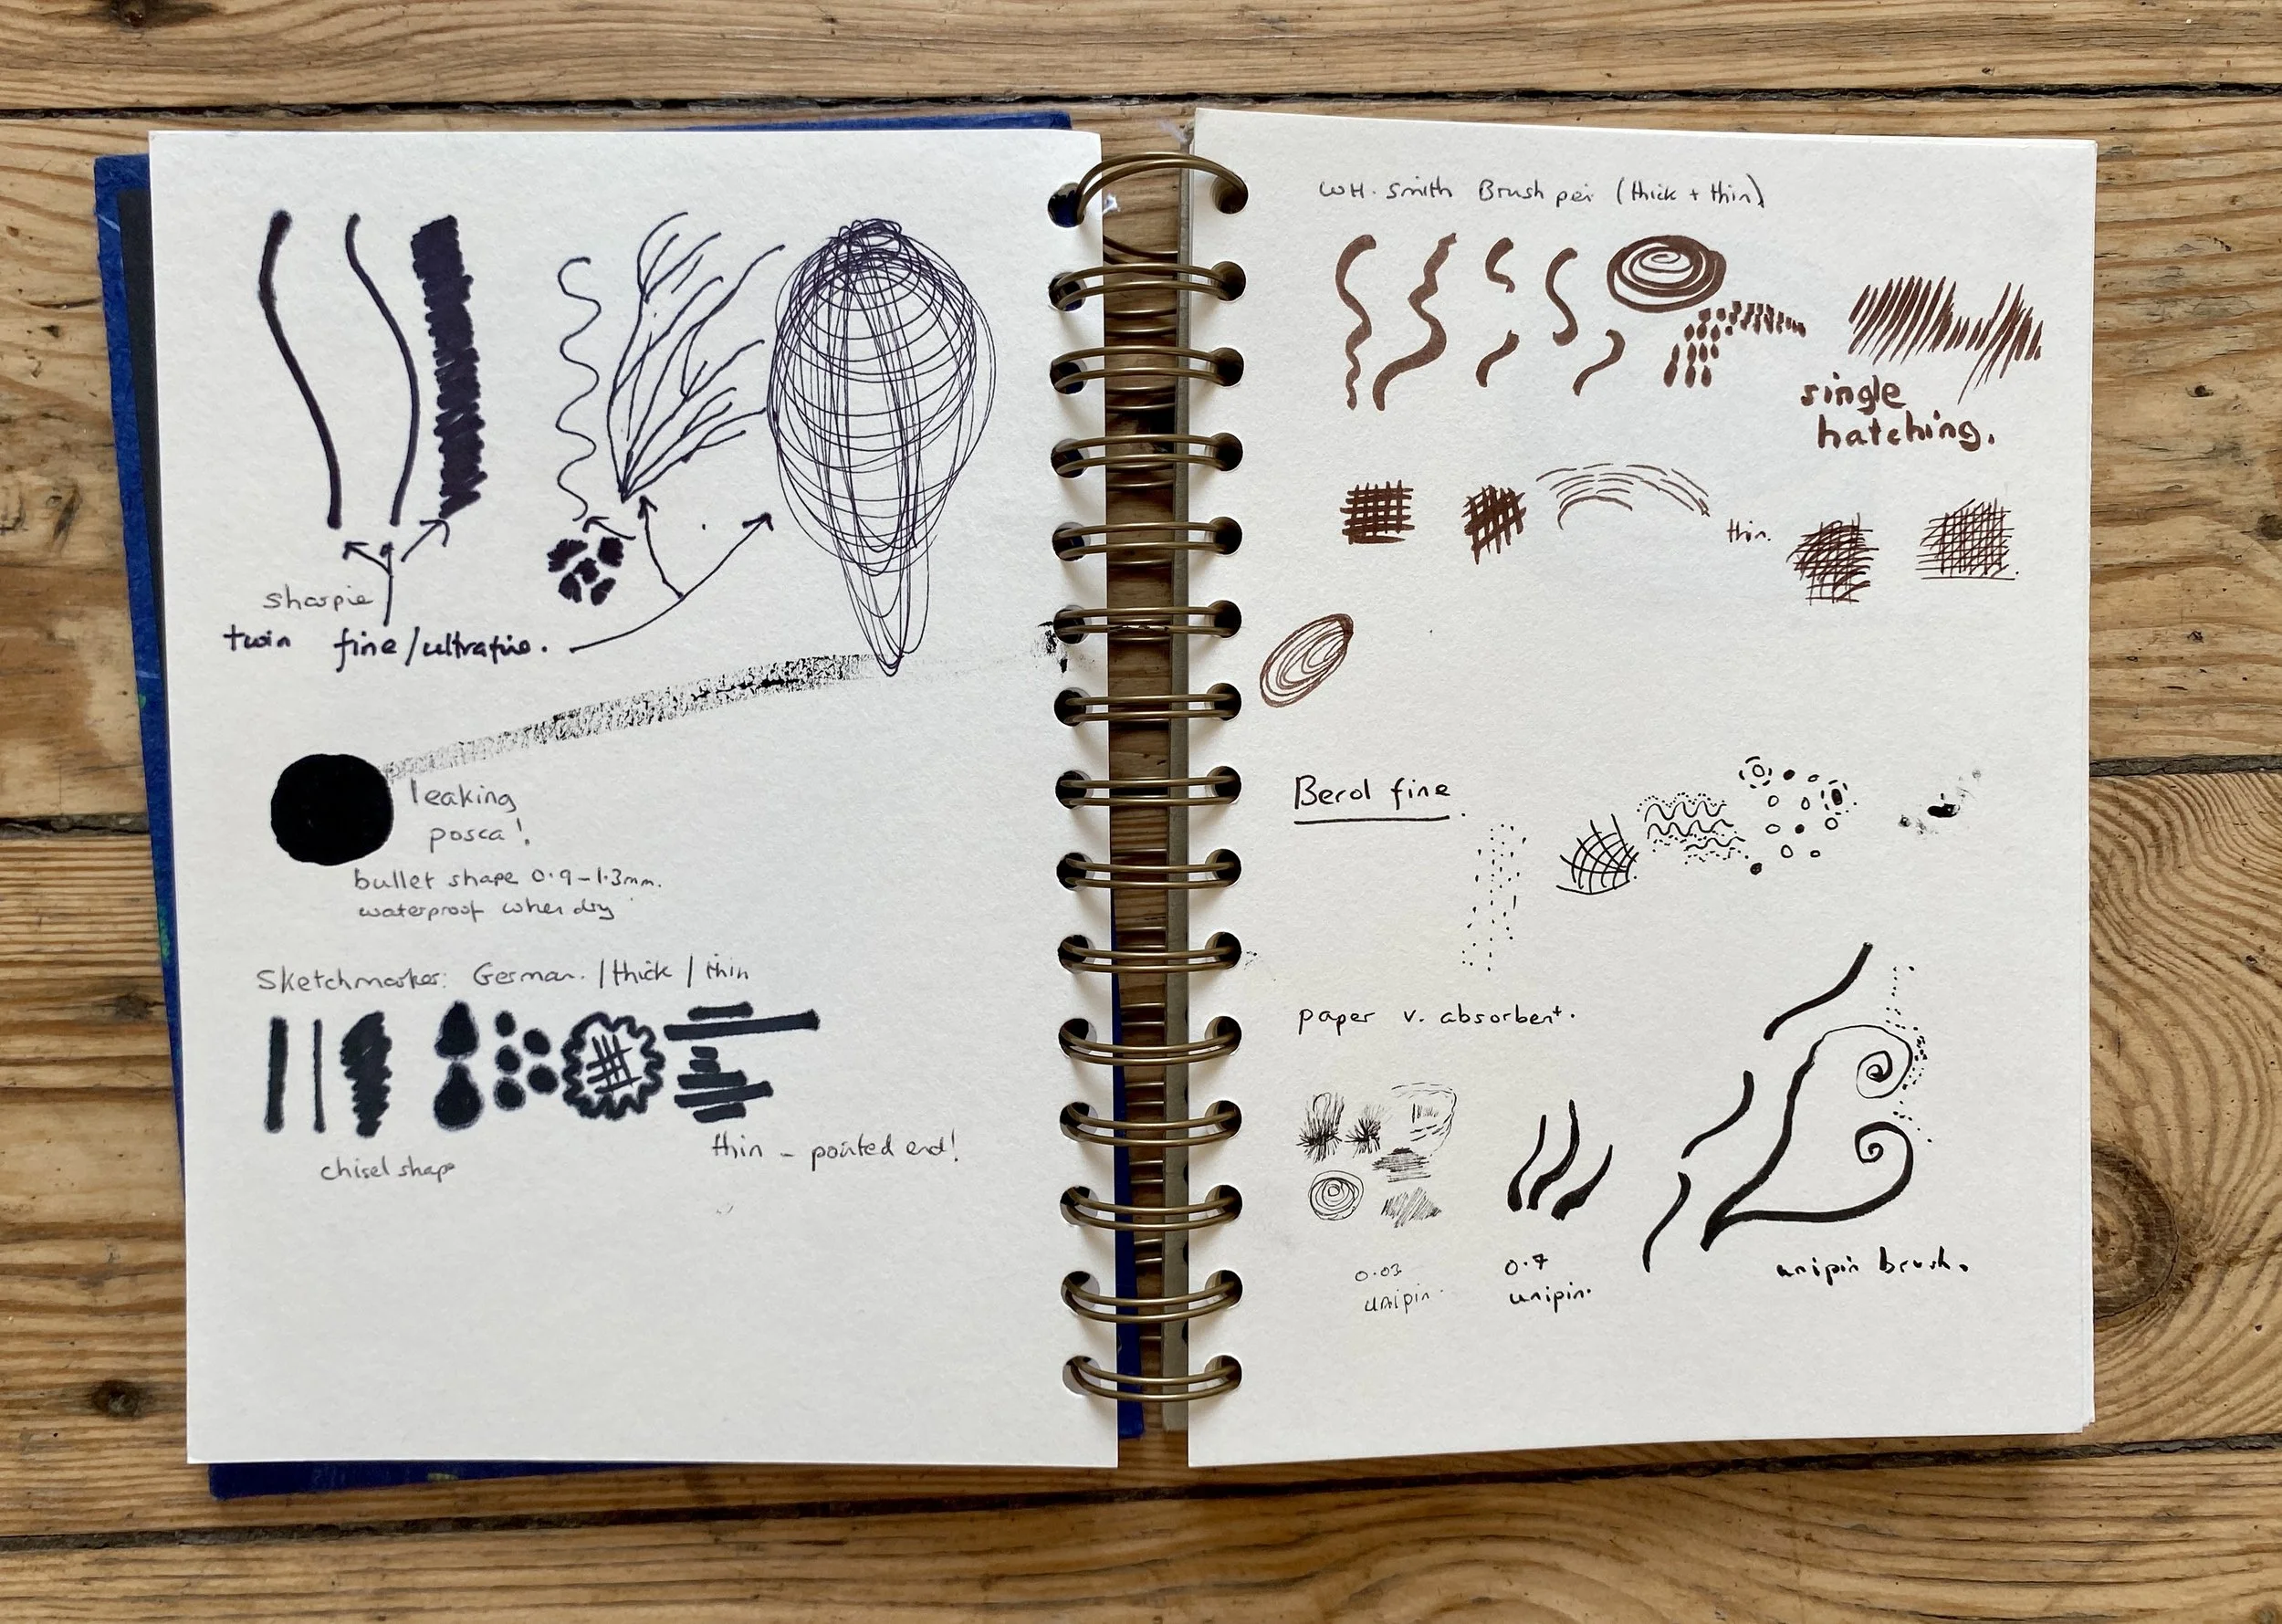 sharpie
twin fine/ultrafine.
leaking
posca!
bullet shape 0.9-1.3mm.
waterproof when dry
Sketchmarker: German. / thick / thin
chisel shape
thin - pointed end!
WH. Smith Brush pen (thick + thin)
single
hatching.
thin.
Berol fine.
paper v. absorbent.
0.03
unipin.
0.7
unipin.
unipin brush.